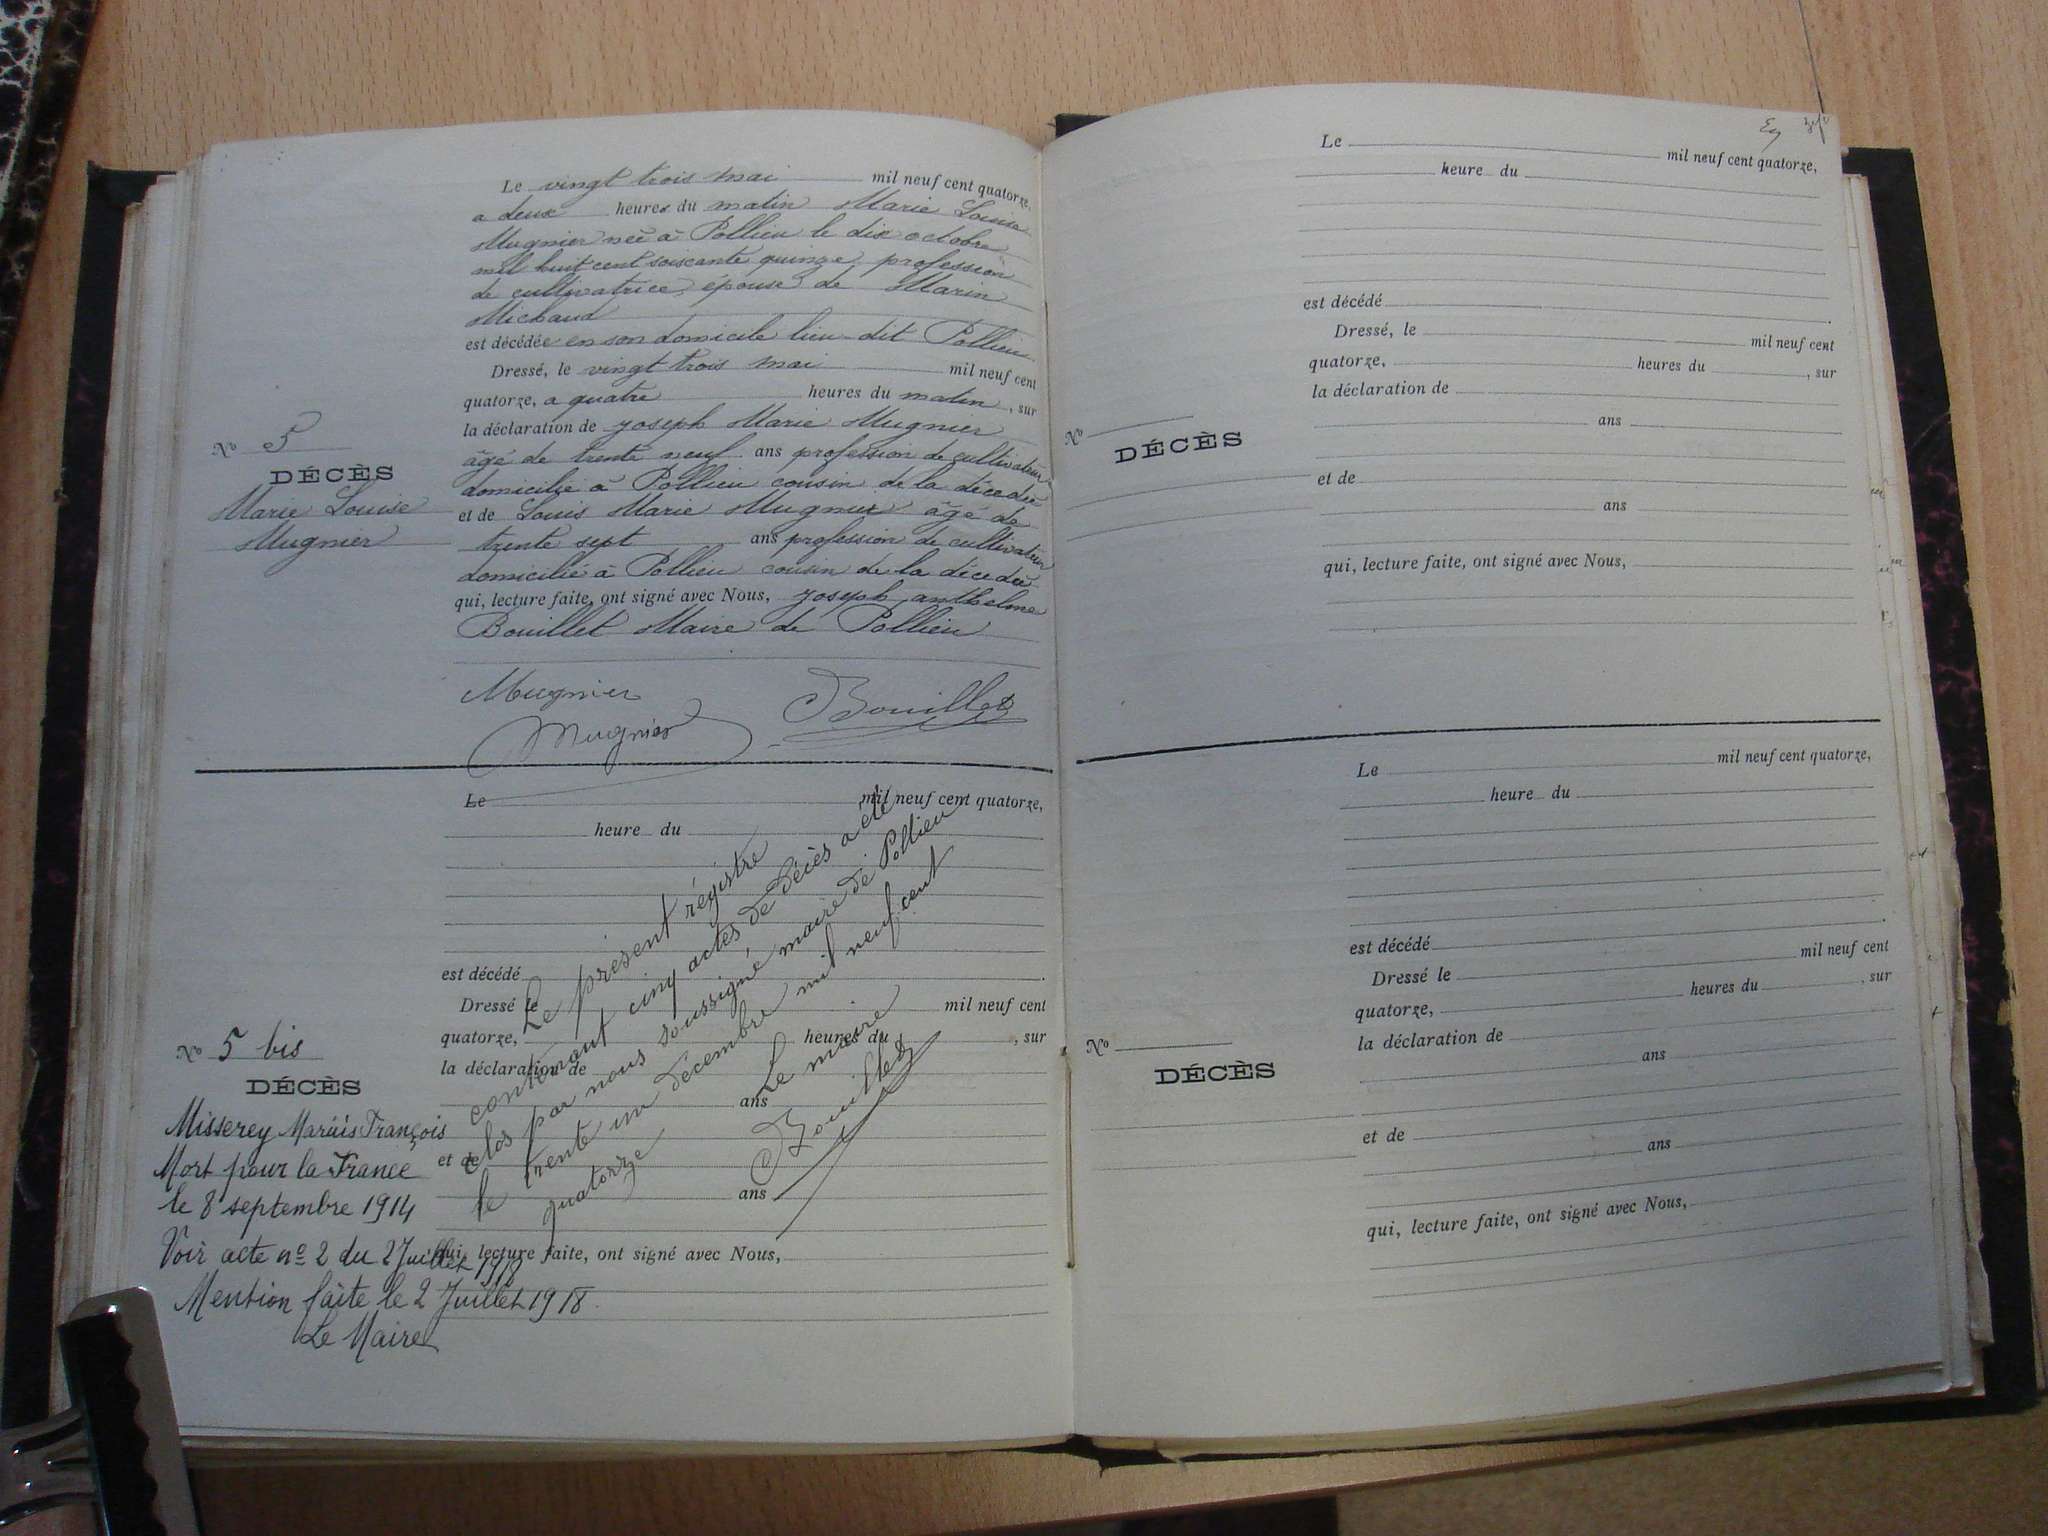 Le vingt trois mai mil neuf cent quatorze,
a deux heures du matin Marie Louise
Mugnier née à Pollieu le dix octobre
mil huit cent soixante quinze profession
de cultivatrice, épouse de Marin
Michaud
est décédée en son domicile lieu-dit Pollieu
Dressé, le vingt trois mai mil neuf cent
quatorze, a quatre heures du matin, sur
la déclaration de Joseph Marie Mugnier
âgé de trente neuf ans profession de cultivateur
domicilié à Pollieu cousin de la décédée
et de Louis Marie Mugnier âgé de
trente sept ans profession de cultivateur
domicilié à Pollieu cousin de la décédée
qui, lecture faite, ont signé avec Nous, Joseph anthelme
Bouillet Maire de Pollieu
No 5
DÉCÈS
Marie Louise
Mugnier
Mugnier
Mugnier
Bouillet
Le mil neuf cent quatorze,
heure du
est décédé
Dressé le mil neuf cent
quatorze, heures du , sur
la déclaration de
ans
et de
ans
qui, lecture faite, ont signé avec Nous,
Le présent régistre
contenant cinq actes de décès a été
clos par nous soussigné maire de Pollieu
le trente un décembre mil neuf cent
quatorze
Le maire
Bouillet
No 5 bis
DÉCÈS
Misserey Marius François
Mort pour la France
le 8 septembre 1914
Voir acte no 2 du 2 Juillet 1918
Mention faite le 2 Juillet 1918.
Le Maire
Le mil neuf cent quatorze,
heure du
est décédé
Dressé, le mil neuf cent
quatorze, heures du , sur
la déclaration de
ans
No
DÉCÈS
et de
ans
qui, lecture faite, ont signé avec Nous,
Le mil neuf cent quatorze,
heure du
est décédé
Dressé le mil neuf cent
quatorze, heures du , sur
la déclaration de
No
ans
DÉCÈS
et de
ans
qui, lecture faite, ont signé avec Nous,